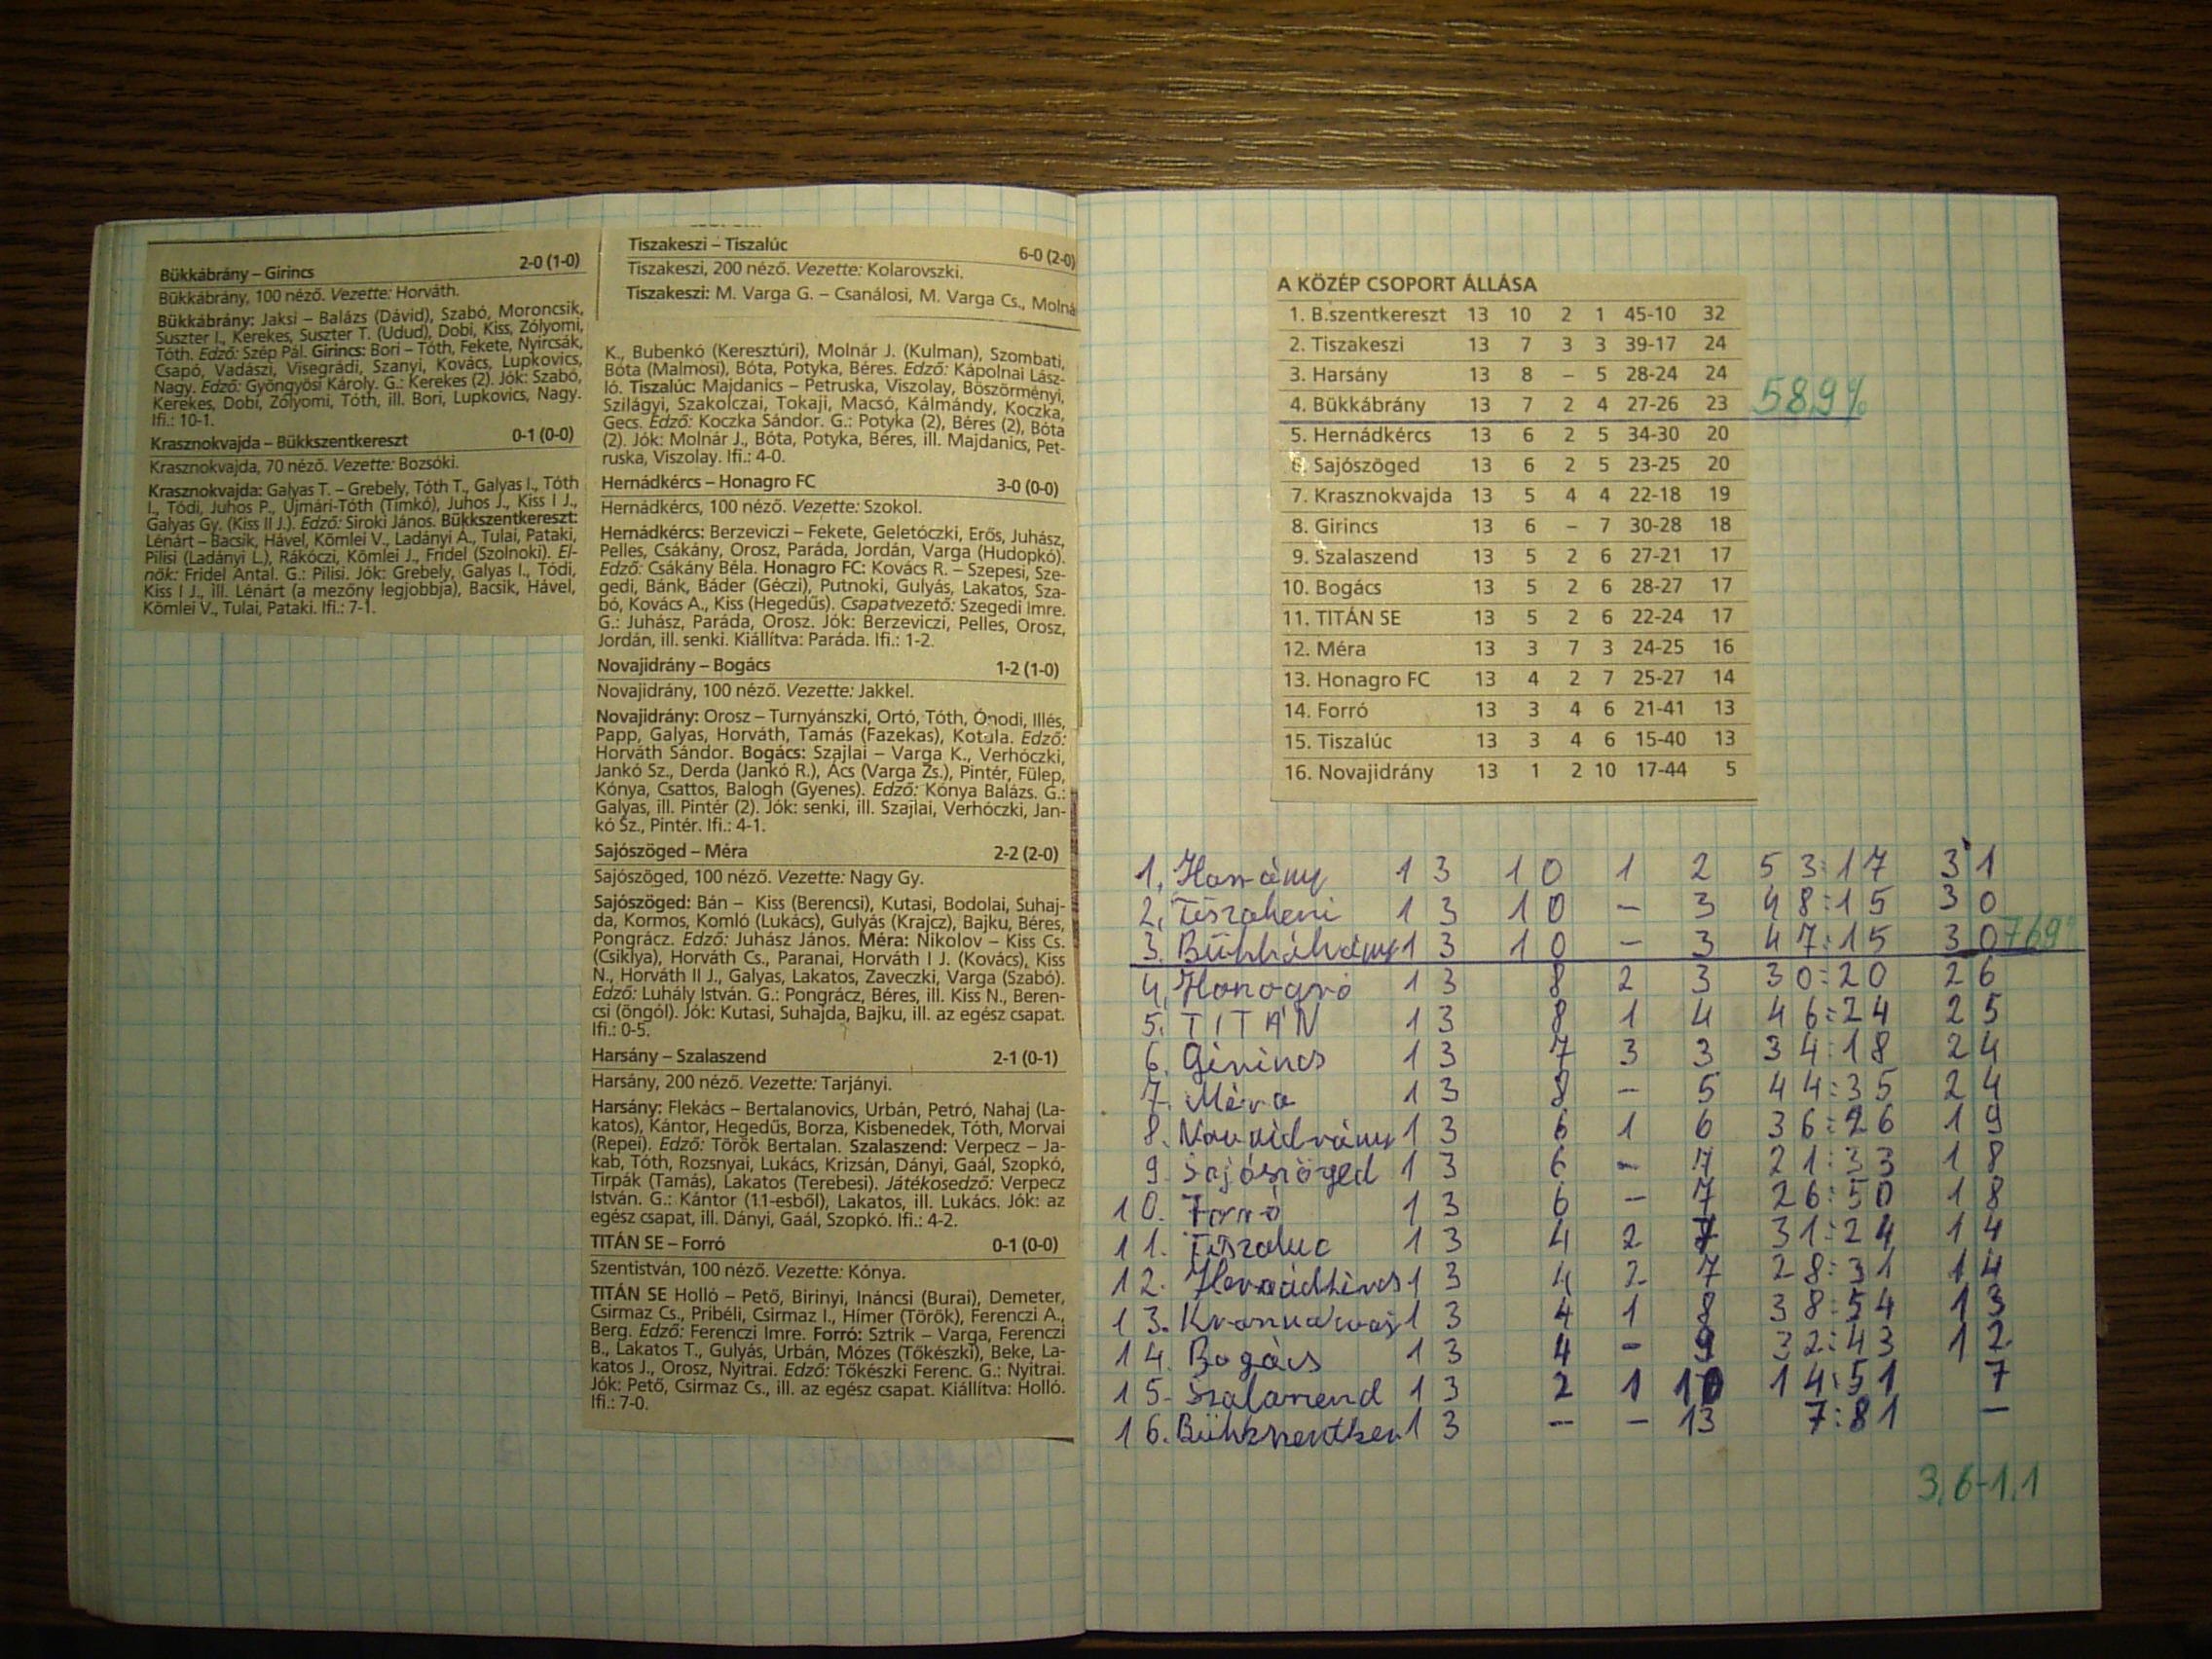 Bükkábrány – Girincs 2-0 (1-0)
Bükkábrány, 100 néző. Vezette: Horváth.
Bükkábrány: Jaksi – Balázs (Dávid), Szabó, Moroncsik,
Suszter I., Kerekes, Suszter T. (Udud), Dobi, Kiss, Zólyomi,
Tóth. Edző: Szép Pál. Girincs: Bori – Tóth, Fekete, Nyircsák,
Csapó, Vadászi, Visegrádi, Szanyi, Kovács, Lupkovics,
Nagy. Edző: Gyöngyösi Károly. G.: Kerekes (2). Jók: Szabó,
Kerekes, Dobi, Zólyomi, Tóth, ill. Bori, Lupkovics, Nagy.
Ifi.: 10-1.
Krasznokvajda – Bükkszentkereszt 0-1 (0-0)
Krasznokvajda, 70 néző. Vezette: Bozsóki.
Krasznokvajda: Galyas T. – Grebely, Tóth T., Galyas I., Tóth
I., Tódi, Juhos P., Újmári-Tóth (Timkó), Juhos J., Kiss I J.,
Galyas Gy. (Kiss II J.). Edző: Siroki János. Bükkszentkereszt:
Lénárt – Bacsik, Hável, Kömlei V., Ladányi A., Tulai, Pataki,
Pilisi (Ladányi L.), Rákóczi, Kömlei J., Fridel (Szolnoki). El-
nök: Fridel Antal. G.: Pilisi. Jók: Grebely, Galyas I., Tódi,
Kiss I J., ill. Lénárt (a mezőny legjobbja), Bacsik, Hável,
Kömlei V., Tulai, Pataki. Ifi.: 7-1.
Tiszakeszi – Tiszalúc 6-0 (2-0)
Tiszakeszi, 200 néző. Vezette: Kolarovszki.
Tiszakeszi: M. Varga G. – Csanálosi, M. Varga Cs., Molná
K., Bubenkó (Keresztúri), Molnár J. (Kulman), Szombati,
Bóta (Malmosi), Bóta, Potyka, Béres. Edző: Kápolnai Lász-
ló. Tiszalúc: Majdanics – Petruska, Viszolay, Böszörményi,
Szilágyi, Szakolczai, Tokaji, Macsó, Kálmándy, Koczka,
Gecs. Edző: Koczka Sándor. G.: Potyka (2), Béres (2), Bóta
(2). Jók: Molnár J., Bóta, Potyka, Béres, ill. Majdanics, Pet-
ruska, Viszolay. Ifi.: 4-0.
Hernádkércs – Honagro FC 3-0 (0-0)
Hernádkércs, 100 néző. Vezette: Szokol.
Hernádkércs: Berzeviczi – Fekete, Geletóczki, Erős, Juhász,
Pelles, Csákány, Orosz, Paráda, Jordán, Varga (Hudopkó).
Edző: Csákány Béla. Honagro FC: Kovács R. – Szepesi, Sze-
gedi, Bánk, Báder (Géczi), Putnoki, Gulyás, Lakatos, Sza-
bó, Kovács A., Kiss (Hegedűs). Csapatvezető: Szegedi Imre.
G.: Juhász, Paráda, Orosz. Jók: Berzeviczi, Pelles, Orosz,
Jordán, ill. senki. Kiállítva: Paráda. Ifi.: 1-2.
Novajidrány – Bogács 1-2 (1-0)
Novajidrány, 100 néző. Vezette: Jakkel.
Novajidrány: Orosz – Turnyánszki, Ortó, Tóth, Ónodi, Illés,
Papp, Galyas, Horváth, Tamás (Fazekas), Kotula. Edző:
Horváth Sándor. Bogács: Szajlai – Varga K., Verhóczki,
Jankó Sz., Derda (Jankó R.), Ács (Varga Zs.), Pintér, Fülep,
Kónya, Csattos, Balogh (Gyenes). Edző: Kónya Balázs. G.:
Galyas, ill. Pintér (2). Jók: senki, ill. Szajlai, Verhóczki, Jan-
kó Sz., Pintér. Ifi.: 4-1.
Sajószöged – Méra 2-2 (2-0)
Sajószöged, 100 néző. Vezette: Nagy Gy.
Sajószöged: Bán – Kiss (Berencsi), Kutasi, Bodolai, Suhaj-
da, Kormos, Komló (Lukács), Gulyás (Krajcz), Bajku, Béres,
Pongrácz. Edző: Juhász János. Méra: Nikolov – Kiss Cs.
(Csiklya), Horváth Cs., Paranai, Horváth I J. (Kovács), Kiss
N., Horváth II J., Galyas, Lakatos, Zaveczki, Varga (Szabó).
Edző: Luhály István. G.: Pongrácz, Béres, ill. Kiss N., Beren-
csi (öngól). Jók: Kutasi, Suhajda, Bajku, ill. az egész csapat.
Ifi.: 0-5.
Harsány – Szalaszend 2-1 (0-1)
Harsány, 200 néző. Vezette: Tarjányi.
Harsány: Flekács – Bertalanovics, Urbán, Petró, Nahaj (La-
katos), Kántor, Hegedűs, Borza, Kisbenedek, Tóth, Morvai
(Repei). Edző: Török Bertalan. Szalaszend: Verpecz – Ja-
kab, Tóth, Rozsnyai, Lukács, Krizsán, Dányi, Gaál, Szopkó,
Tirpák (Tamás), Lakatos (Terebesi). Játékosedző: Verpecz
István. G.: Kántor (11-esből), Lakatos, ill. Lukács. Jók: az
egész csapat, ill. Dányi, Gaál, Szopkó. Ifi.: 4-2.
TITÁN SE – Forró 0-1 (0-0)
Szentistván, 100 néző. Vezette: Kónya.
TITÁN SE Holló – Pető, Birinyi, Ináncsi (Burai), Demeter,
Csirmaz Cs., Pribéli, Csirmaz I., Hímer (Török), Ferenczi A.,
Berg. Edző: Ferenczi Imre. Forró: Sztrik – Varga, Ferenczi
B., Lakatos T., Gulyás, Urbán, Mózes (Tőkészki), Beke, La-
katos J., Orosz, Nyitrai. Edző: Tőkészki Ferenc. G.: Nyitrai.
Jók: Pető, Csirmaz Cs., ill. az egész csapat. Kiállítva: Holló.
Ifi.: 7-0.
A KÖZÉP CSOPORT ÁLLÁSA
1. B.szentkereszt 13 10 2 1 45-10 32
2. Tiszakeszi 13 7 3 3 39-17 24
3. Harsány 13 8 – 5 28-24 24
4. Bükkábrány 13 7 2 4 27-26 23 58,9%
5. Hernádkércs 13 6 2 5 34-30 20
6. Sajószöged 13 6 2 5 23-25 20
7. Krasznokvajda 13 5 4 4 22-18 19
8. Girincs 13 6 – 7 30-28 18
9. Szalaszend 13 5 2 6 27-21 17
10. Bogács 13 5 2 6 28-27 17
11. TITÁN SE 13 5 2 6 22-24 17
12. Méra 13 3 7 3 24-25 16
13. Honagro FC 13 4 2 7 25-27 14
14. Forró 13 3 4 6 21-41 13
15. Tiszalúc 13 3 4 6 15-40 13
16. Novajidrány 13 1 2 10 17-44 5
1. Harsány 13 10 1 2 53:17 31
2. Tiszakeszi 13 10 – 3 48:15 30
3. Bükkábrány 13 10 – 3 47:15 30 769
4. Honagró 13 8 2 3 30:20 26
5. TITÁN 13 8 1 4 46:24 25
6. Girincs 13 7 3 3 34:18 24
7. Méra 13 8 – 5 44:35 24
8. Novajidrány 13 6 1 6 36:26 19
9. Sajószöged 13 6 – 7 21:33 18
10. Forró 13 6 – 7 26:50 18
11. Tiszaluc 13 4 2 7 31:24 14
12. Hernádkércs 13 4 2 7 28:31 14
13. 13 4 1 8 38:54 13
14. Bogács 13 4 – 9 32:43 12
15. Szalaszend 13 2 1 10 14:51 7
16. Bükkszentker 13 – – 13 7:81 –
3,6-1,1